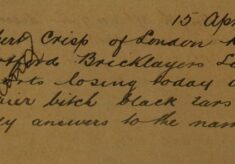 15 Apr
Crisp of London R
Bricklayers L
losing today a
bitch black ears
answers to the nam